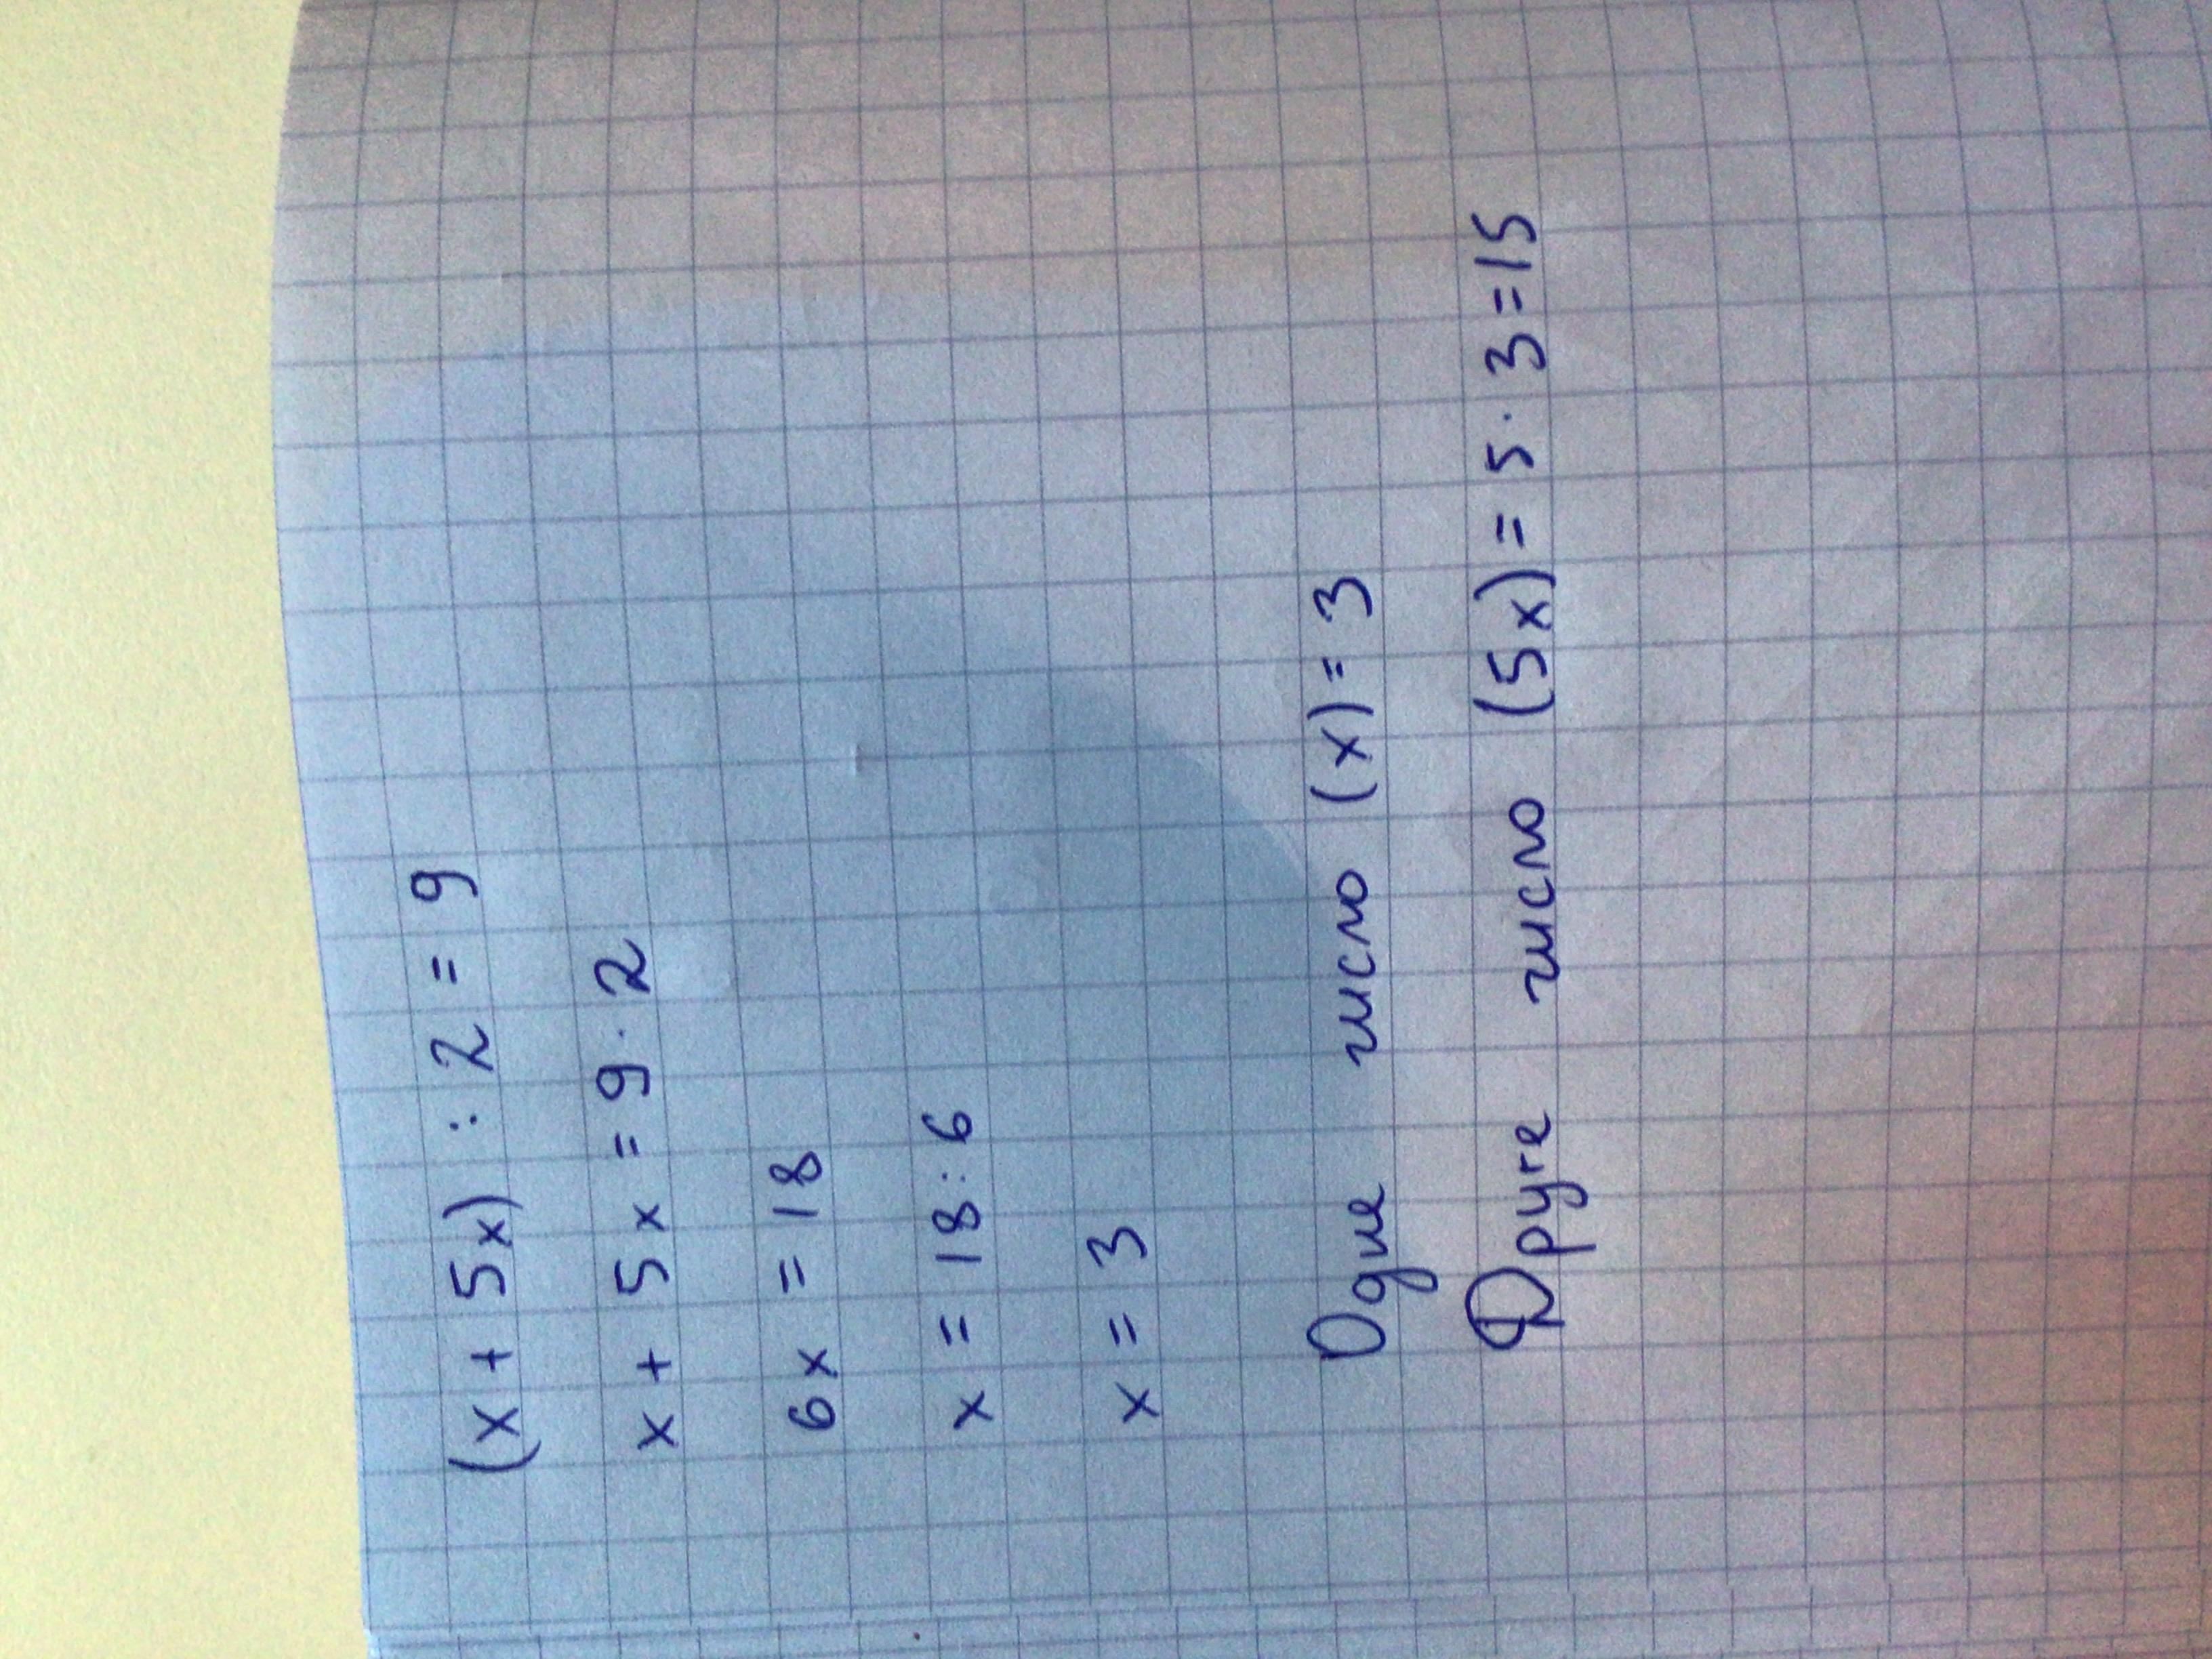 (x + 5x) : 2 = 9
x + 5x = 9 · 2
6x = 18
x = 18 : 6
x = 3
Одне число (x) = 3
Друге число (5x) = 5 · 3 = 15